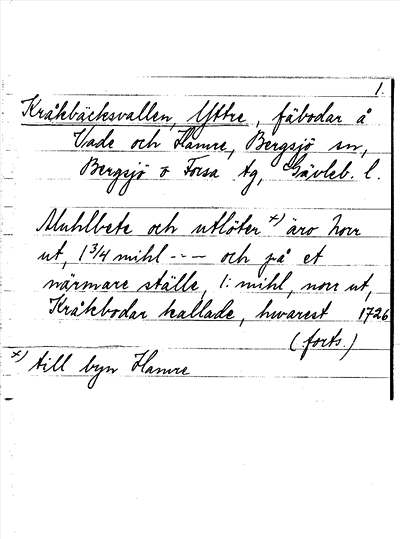 1.
Kråkbäcksvallen, Yttre, fäbodar å
Vade och Hamre, Bergsjö sn,
Bergsjö o Forsa tg, Gävleb. l.
Muhlbete och utlöter x) äro norr
ut, 1 3/4 mihl - - - och på et
närmare ställe, 1: mihl, norr ut,
Kråkbodar kallade, hwarest 1726
(forts.)
x) till byn Hamre